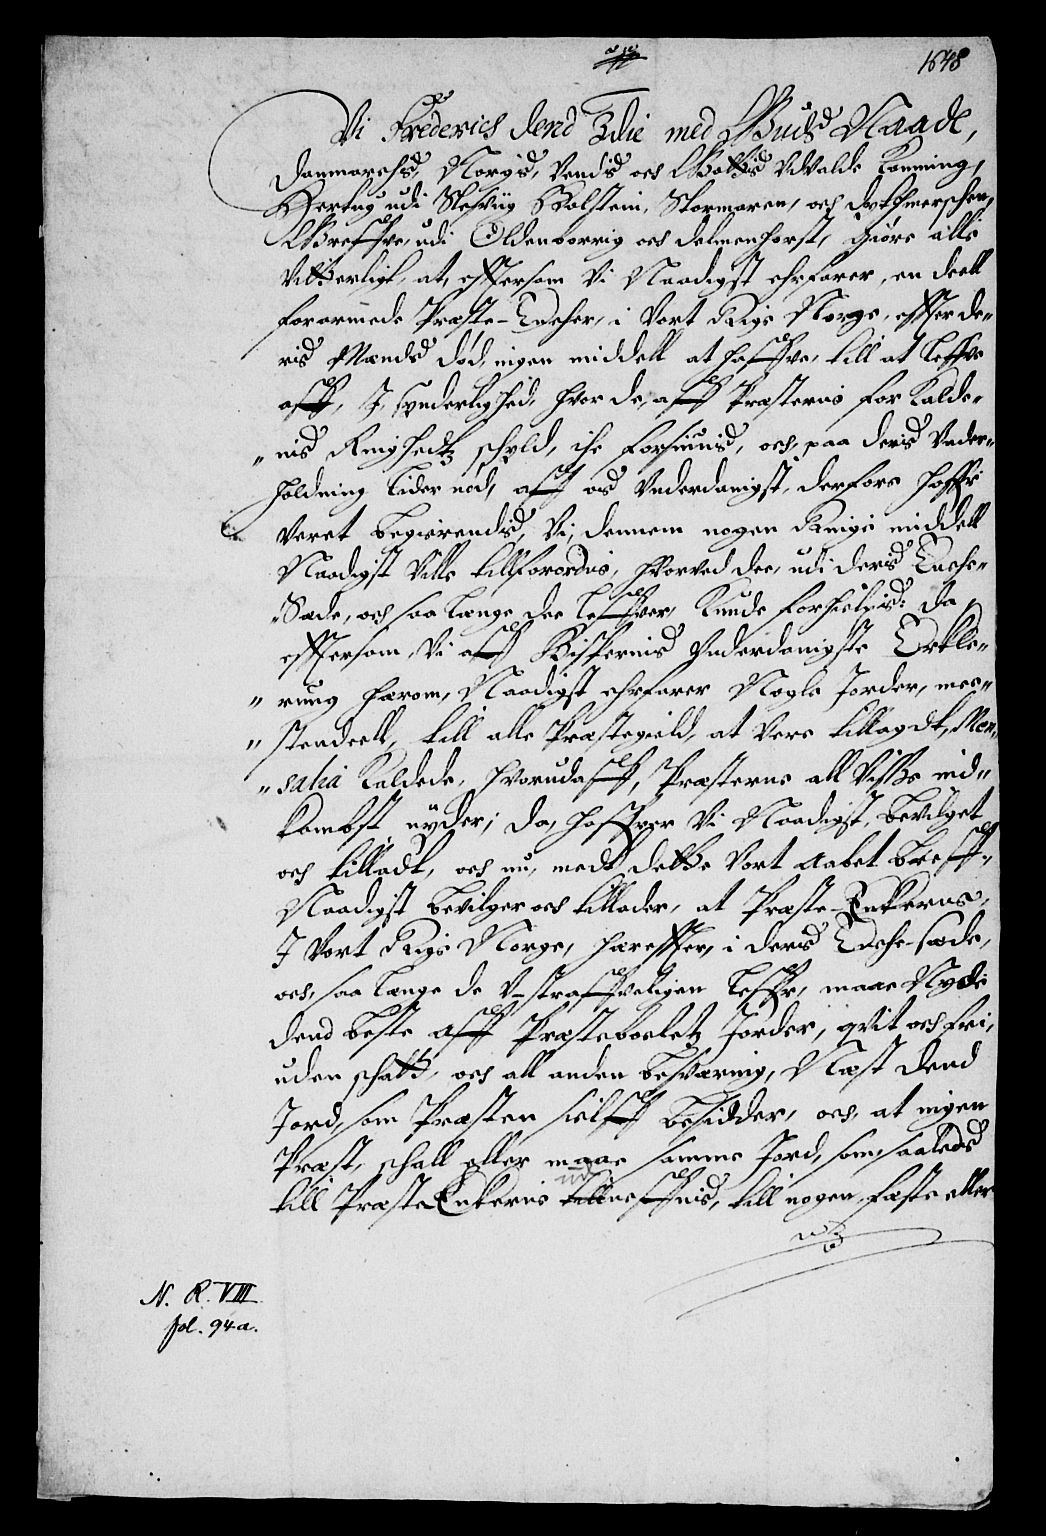 1648
Vi Frederich dend 3die med Guds Naade,
Danmarchs, Norgis, Vendis och Gottis Udvalde Konning,
Hertug udi Slesviig Holstein, Stormaren, och Dythmerschen,
Greffve, udi Oldenborrig och Delmenhorst, Giøre alle
Vitterligt, at, effterson Vi Naadigst ehrfarer, en deell
forarmede Præste-Encher, i Vort Rige Norge, effter de-
ris Mænds død, ingen middell at haffve, till at leffve
aff, J synderlighed, hvor de, aff Præsterne for Kalde-
"nis Ringhedtz schyld, iche forsiunis, och, paa deris Under-
holdning lider nød, aff os Underdanigst, derfore haffr
Veret begierendis, Vi, dennem nogen Ringe middell
Naadigst Ville tillforordne, hvorved dee, udi deris Enche-
"Sæde, och saa længe dee leffver, Kunde forhielpis: Da
efftersom, Vi aff Bispernis Underdanigste Erkle-
"rung hærom, Naadigst ehrfarer Nogle Jorder, mee-
"stendeell, till alle Præstegield, at Vere tillagdt, Men-
"salia Kaldede, hvorudaff, Præsterne all Visse ind-
kombst nyder; Da, haffver Vi Naadigst, bevilget
och tilladt, och nu, medt dette Vort aabet breff,
Naadigst bevilger och tillader, at Præste-Enkerne,
J Vort Rige Norge, hæreffter, i deris Enche-sæde,
och, saa længe de U-straffveligen leffvr, maae Nyde
dend beste aff Præsteboeletz Jorder, qvit och fri,
uden schatt, och all anden besværing, Næst dend
Jord, som Præsten sielff besidder, och, at ingen
Præst, schall eller maae samme Jord, som saaleds
till PræsteEnkerne udneffnis, till nogen, fæste eller
N. R. VIII
fol. 94 a.